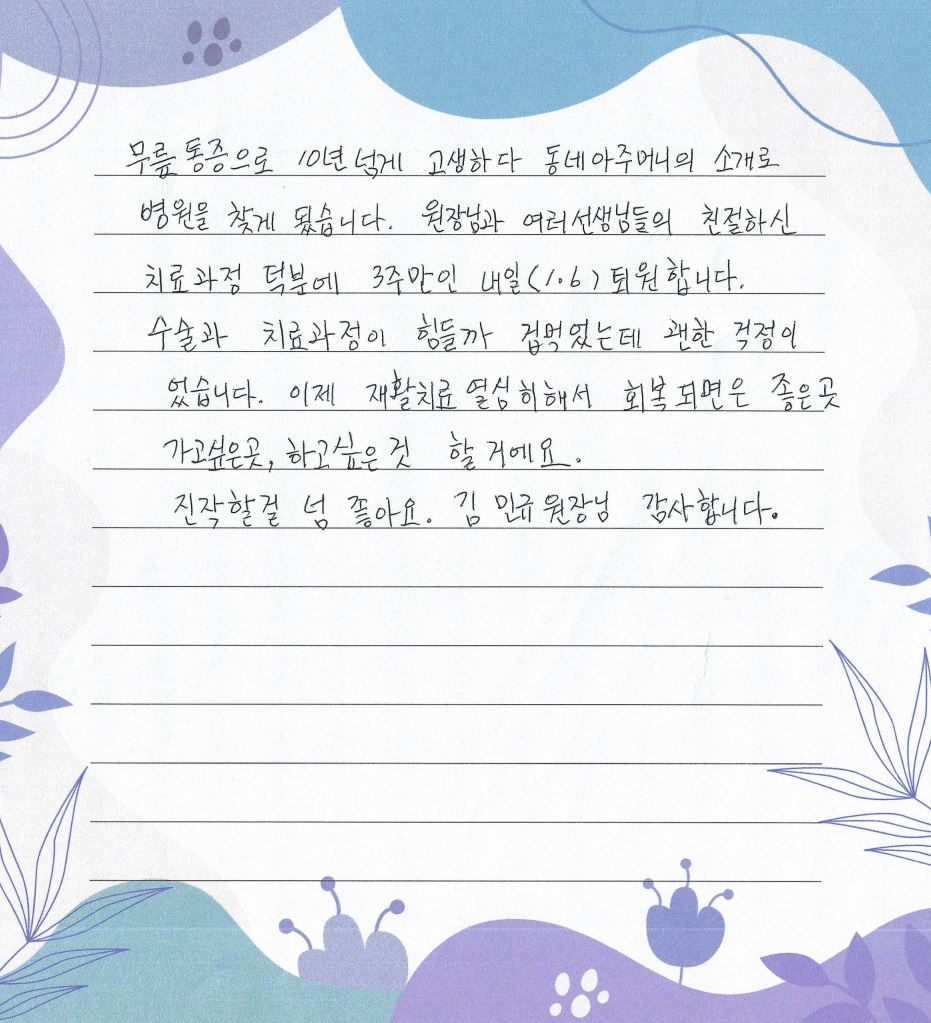 무릎통증으로 10년넘게 고생하다 동네아주머니의 소개로
병원을 찾게 됬습니다. 원장님과 여러선생님들의 친절하신
치료과정 덕분에 3주만인 내일(1.6) 퇴원합니다.
수술과 치료과정이 힘들까 겁먹었는데 괜한 걱정이
었습니다. 이제 재활치료 열심히해서 회복되면은 좋은곳
가고싶은곳, 하고싶은것 할거에요.
진작할걸 넘 좋아요. 김민규원장님 감사합니다.